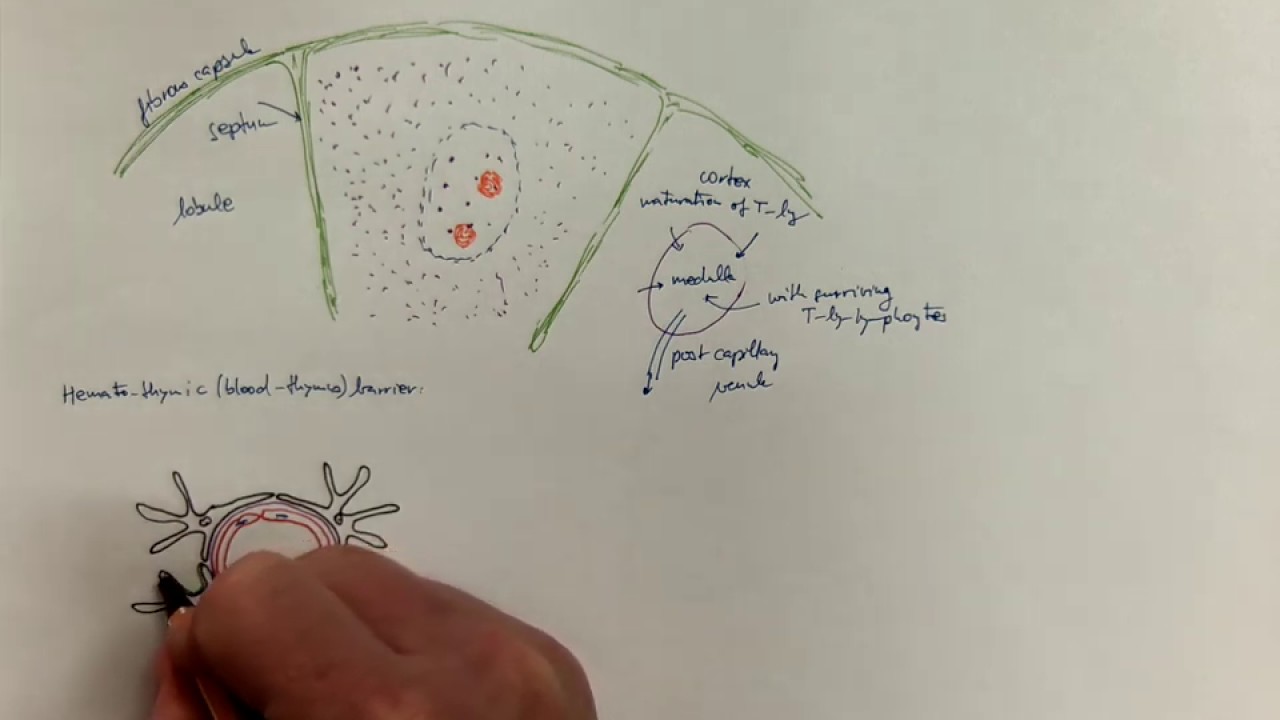 fibrous capsule
septum
lobule
cortex
maturation of T-ly
medulla
with surviving
T-ly lymphocytes
post capillary
venule
Hemato-thymic (blood-thymus) barrier: